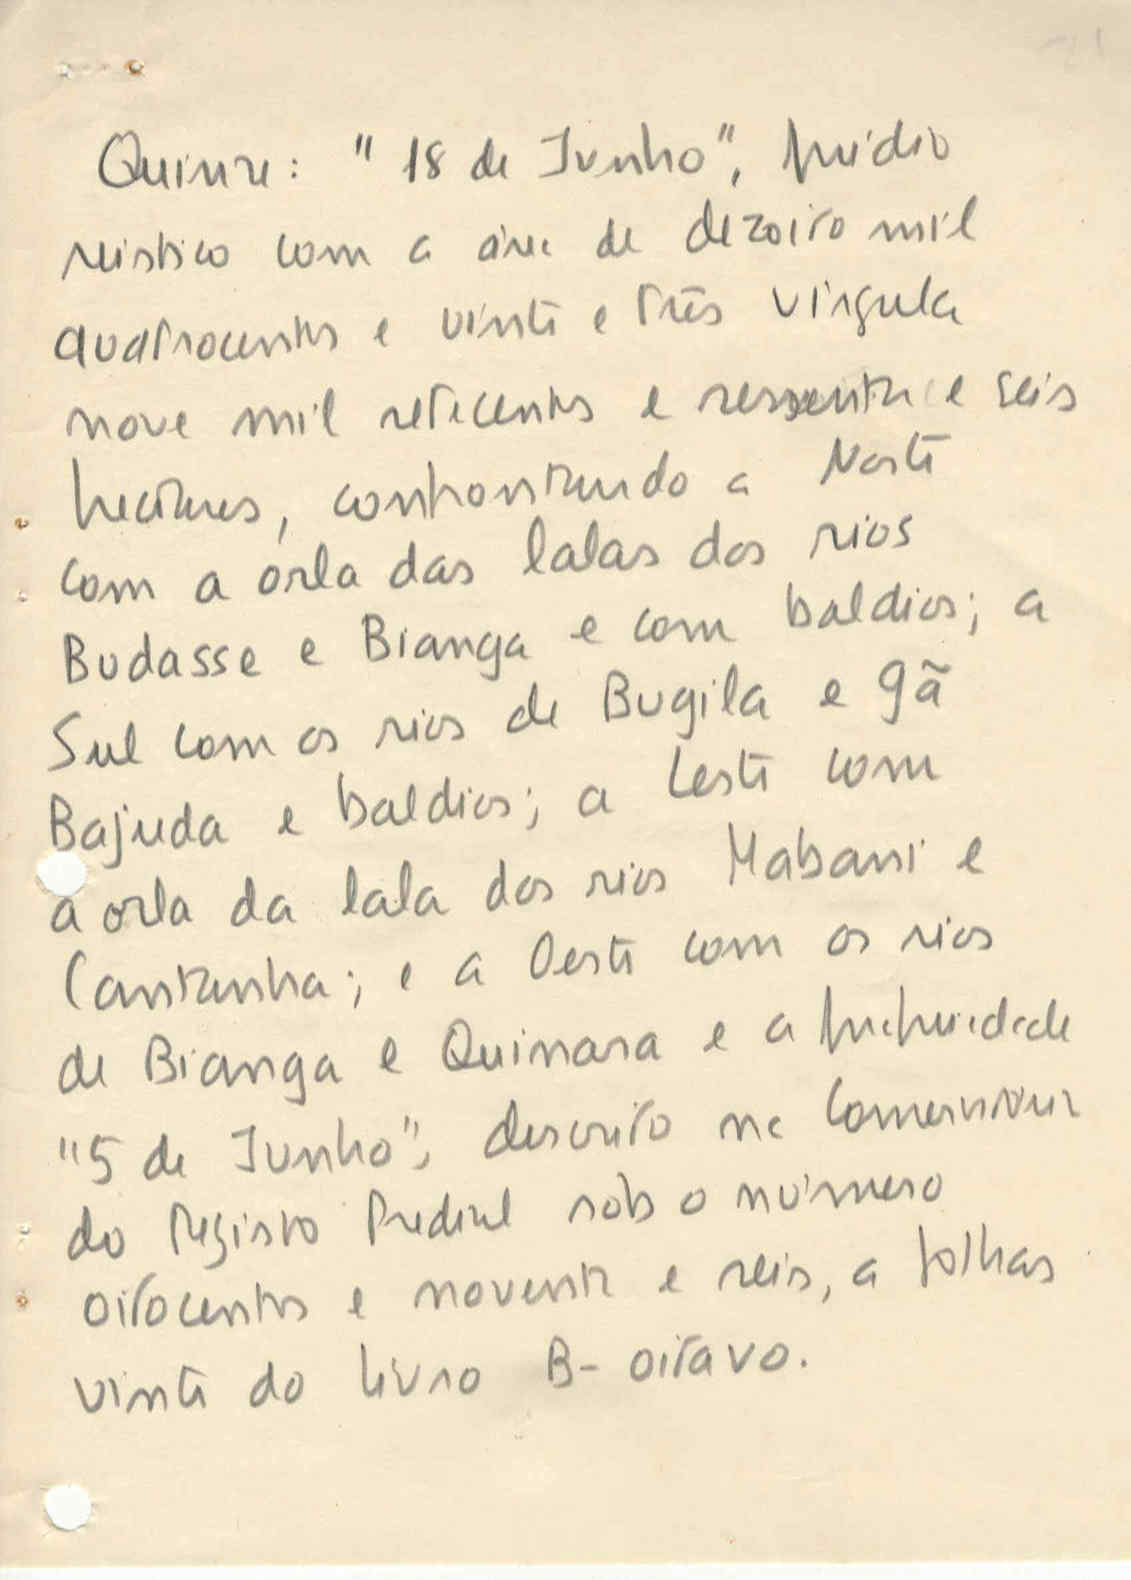 Quinze: "18 de Junho", prédio
rústico com a área de dezoito mil
quatrocentos e vinte e três vírgula
nove mil setecentos e sessenta e seis
hectares, confrontando a Norte
com a orla das lalas dos rios
Budasse e Bianga e com baldios; a
Sul com os rios de Bugila e gã
Bajuda e baldios; a Leste com
a orla da lala dos rios Mabani e
Cantanha; e a Oeste com os rios
de Bianga e Quinara e a propriedade
"5 de Junho"; descrito na Conservatória
do Registo Predial sob o número
oitocentos e noventa e seis, a folhas
vinte do livro B- oitavo.